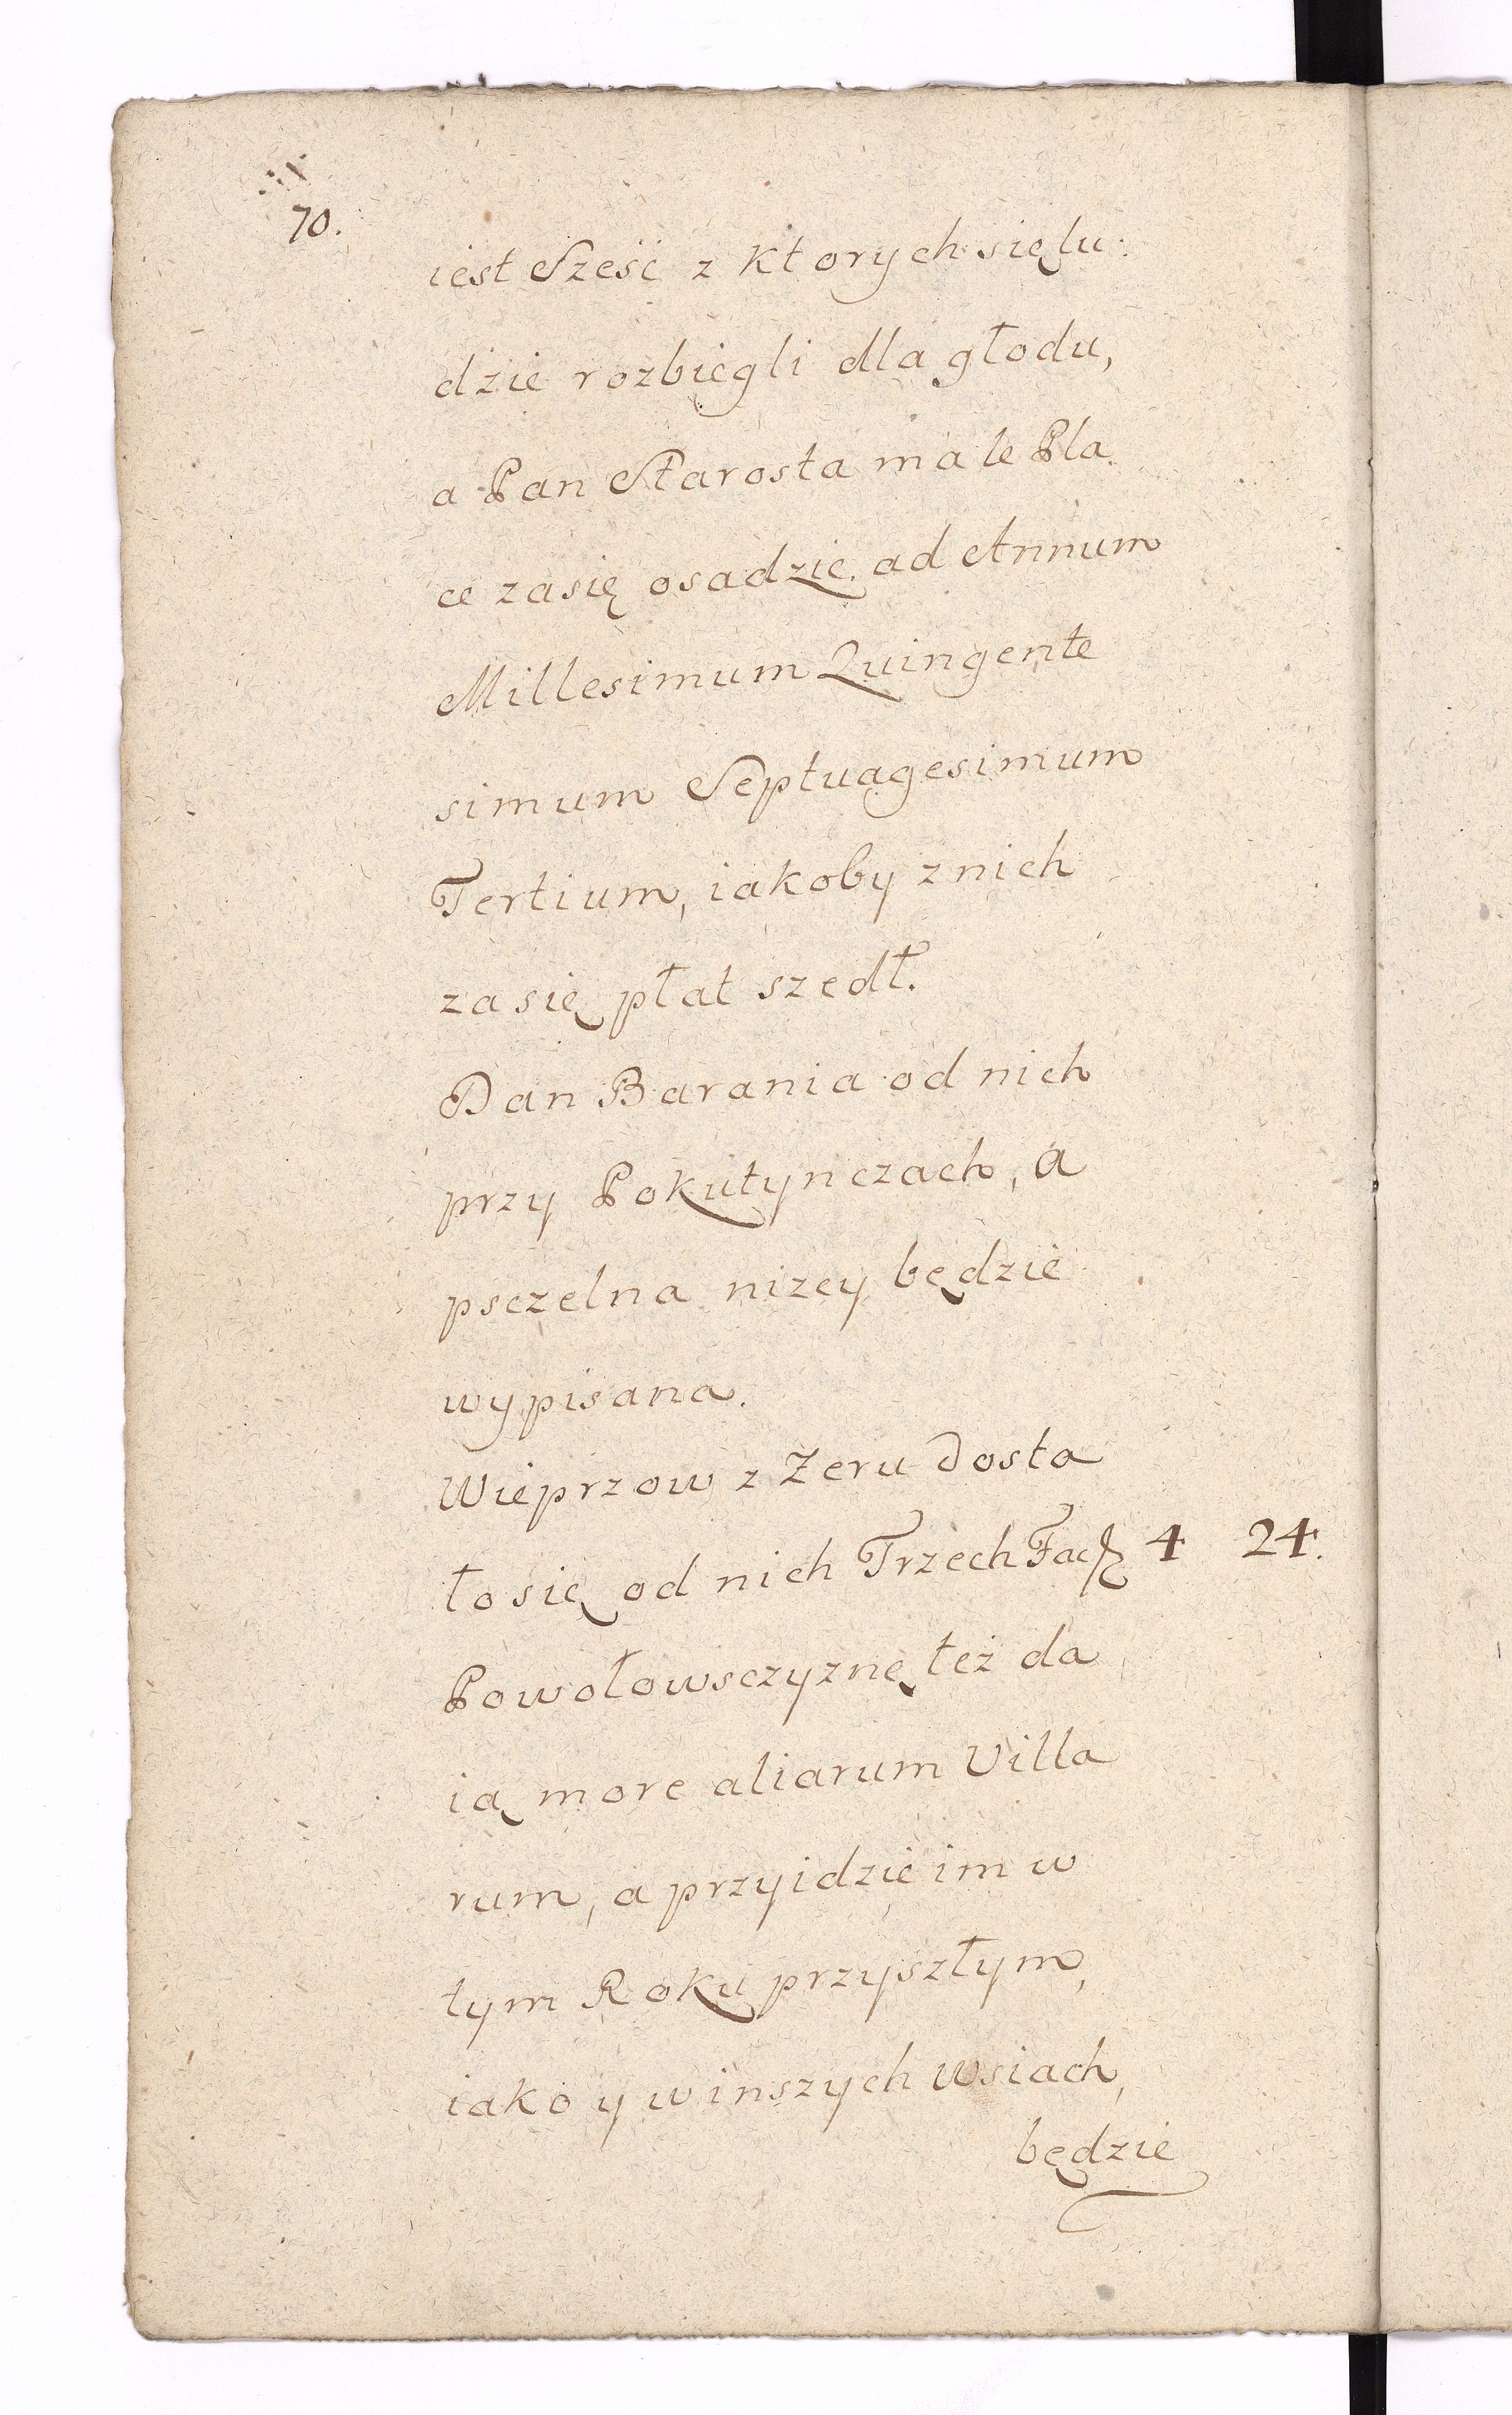 70.
iest Sześć z ktorych się lu:
dzie rozbiegli dla głodu,
a Pan Starosta ma te Pla
ce zasię osadzić ad Annum
Millesimum Quingente
simum Septuagesimum
Tertium, iakoby z nich
zasię płat szedł.
Dan Barania od nich
przy Pokutynczach, a
psczelna nizey będzie
wypisana.
Wieprzow z Zeru dosta
ło się od nich Trzech Fac 4 24.
Powołowsczyznę też da
ią more aliarum Villa
rum, a przyidzie im w
tym Roku przyszłym,
iako y w inszych wsiach,
będzie